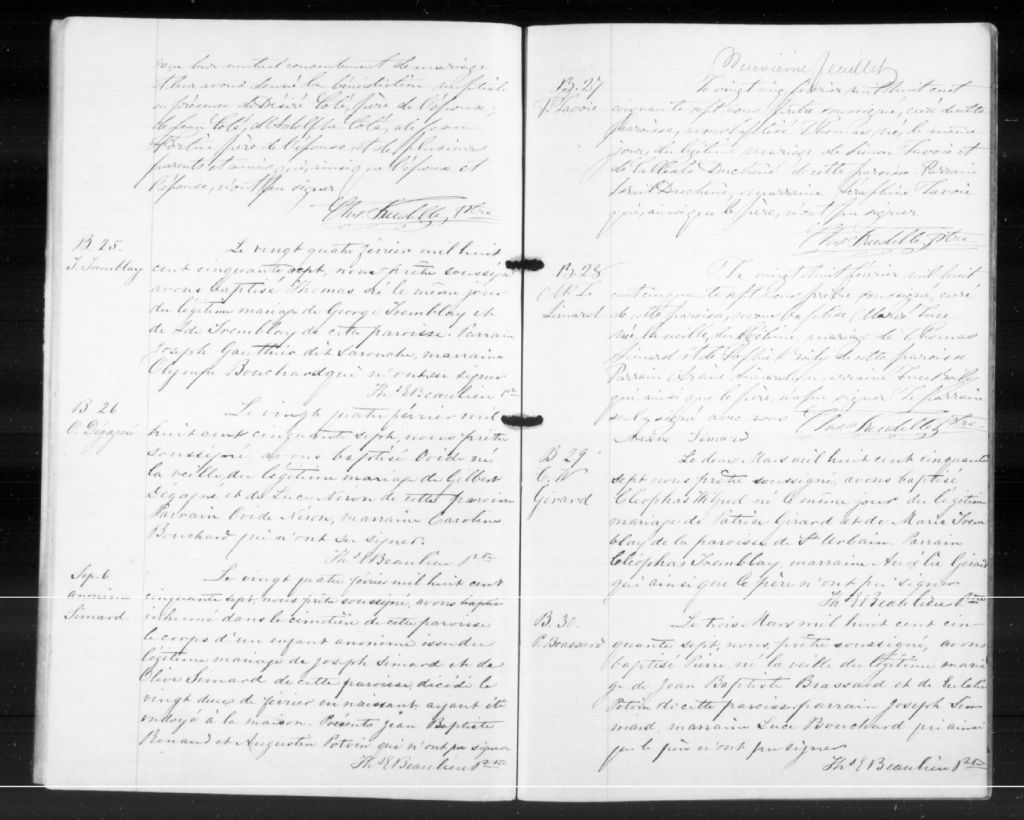 leur mutuel consentement de mariage
et leur avons donné la bénédiction nuptiale
en présence de Désiré Coté, père de l'époux,
de Jean Coté, d'Adolphe Coté, de Jean
Fortin père de l'épouse et de plusieurs
parents et amis, qui, ainsi que l'époux et
l'épouse, n'ont pu signer
Ptre
B 25.
T. Tremblay
Le vingt quatre février mil huit
cent cinquante sept, nous prêtre soussigné
avons baptisé Thomas né le même jour
du légitime mariage de George Tremblay et
de Tremblay de cette paroisse. Parrain
Joseph Gauthier dit Larouche, marraine
Olympe Bouchard qui n'ont su signer
Ths E Beaulieu Ptre
B 26
O. Dégagné
Le vingt quatre février mil
huit cent cinquante sept, nous prêtre
soussigné, avons baptisé Ovide né
la veille du légitime mariage de Gilbert
Dégagné et de Luce Néron de cette paroisse
Parrain Ovide Néron, marraine Caroline
Bouchard qui n'ont su signer.
Ths E Beaulieu Ptre
Sep. 6
anonime
Simard
Le vingt quatre février mil huit cent
cinquante sept, nous prêtre soussigné, avons
inhumé dans le cimetière de cette paroisse
le corps d'un enfant anonime issu du
légitime mariage de Joseph Simard et de
Olive Simard de cette paroisse, décédé le
vingt deux de février en naissant ayant été
ondoyé à la maison. Présents Jean Baptiste
Renaud et Augustin Potvin qui n'ont pu signer
Ths E Beaulieu Ptre
Neuvième feuillet
B. 27
T. Savoie
Le vingt cinq février mil huit cent
cinquante sept nous prêtre soussigné, curé de cette
paroisse, avons baptisé Thomas né, le même
jour, du légitime mariage de Simon Savoie et
de Duchêne de cette paroisse. Parrain
Duchêne, marraine Séraphine Savoie
qui, ainsi que le père, n'ont pu signer
Ptre
B. 28
M. L.
Simard
Le vingt huit février mil huit
cent cinquante sept nous prêtre soussigné, curé
de cette paroisse, avons baptisé Marie Luce
née la veille, du légitime mariage de Thomas
Simard et de de cette paroisse
Parrain Arsène Simard, marraine Luce
qui ainsi que le père, n'a pu signer. Le parrain
seul a signé avec nous Ptre
Arsène Simard
B 29
C. W
Girard
Le deux Mars mil huit cent cinquante
sept nous prêtre soussigné, avons baptisé
Cléophas Wilfred né le même jour du légitime
mariage de Patrice Girard et de Marie Trem
blay de la paroisse de St Urbain. Parrain
Cléophas Tremblay, marraine Aurélie Girard
qui ainsi que le père n'ont pu signer
Ths E Beaulieu Ptre
B. 30.
P. Brassard
Le trois Mars mil huit cent cin-
quante sept, nous, prêtre soussigné, avons
baptisé Pierre, né la veille du légitime maria
ge de Jean Baptiste Brassard et de Eulalie
Potvin de cette paroisse, parrain Joseph Si
mard, marraine Luce Bouchard qui ainsi
que le père n'ont pu signer
Ths E Beaulieu Ptre